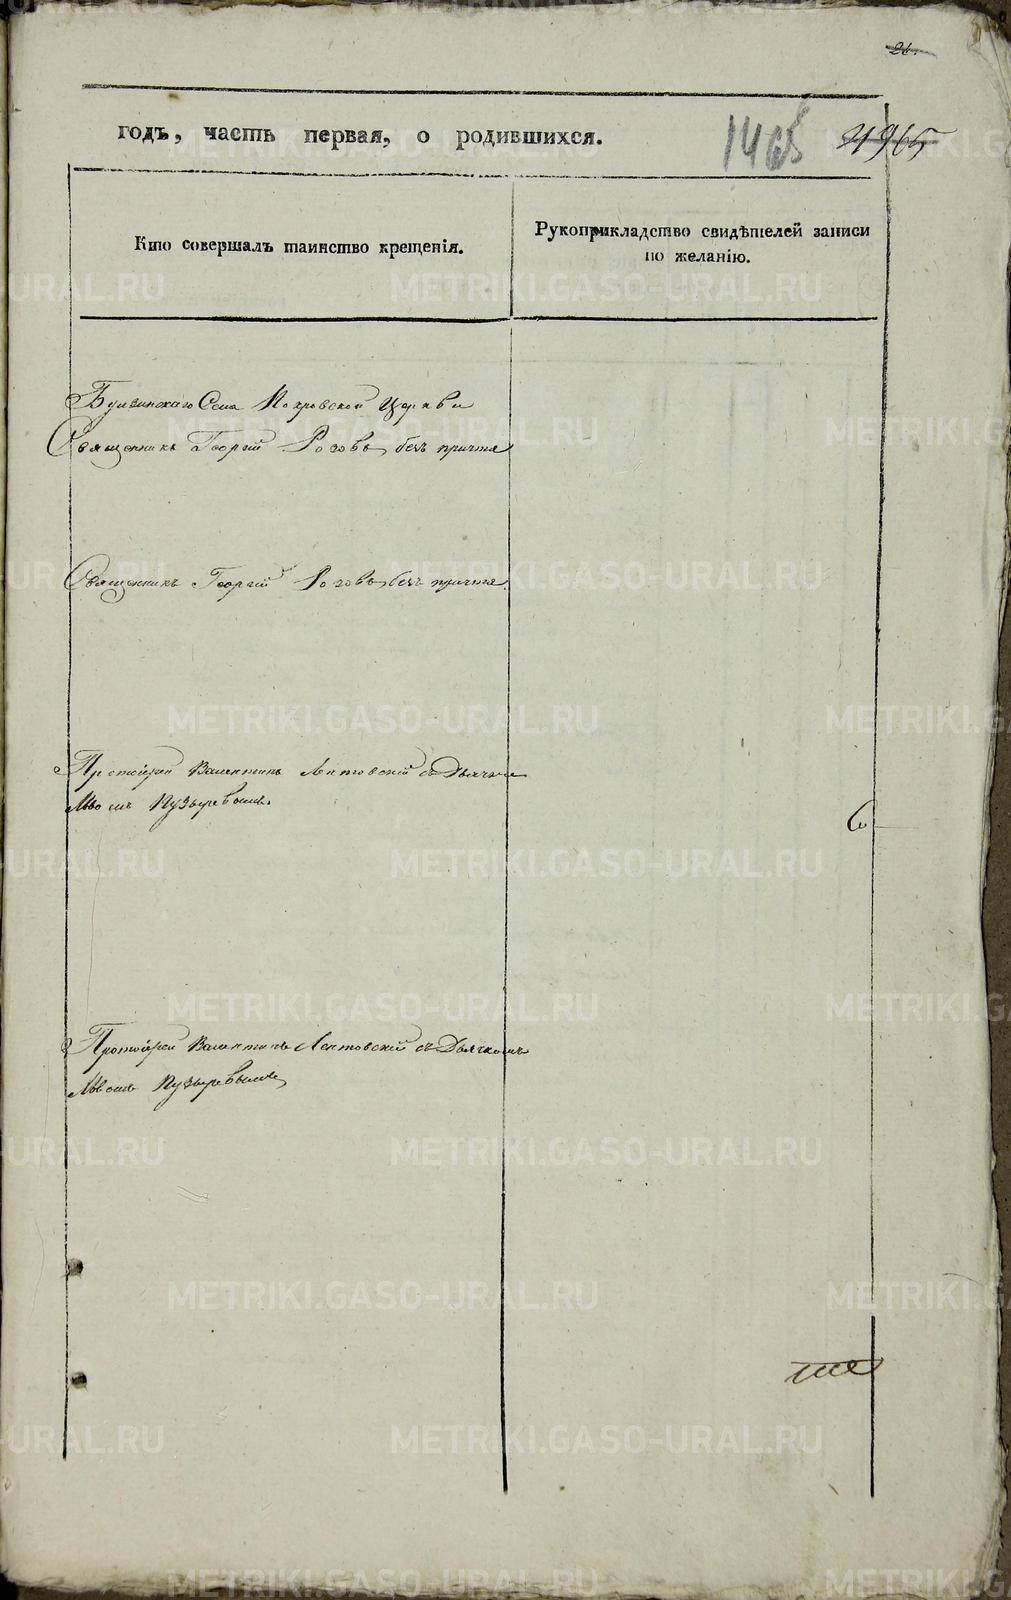 26.
годъ, часть первая, о родившихся.
1468
1965
Кто совершалъ таинство крещенія.
Рукоприкладство свидѣтелей записи
по желанію.
Булзинскаго Села Покровской Церкви
Священникъ Георгій Розовъ, безъ причта
Священникъ Георгій Розовъ, безъ причта.
Протоіерей Валентинъ Лентовскій съ Дьячкомъ
Львомъ Пузыревымъ.
Протоіерей Валентинъ Лентовскій съ Дьячкомъ
Львомъ Пузыревымъ
METRIKI.GASO-URAL.RU